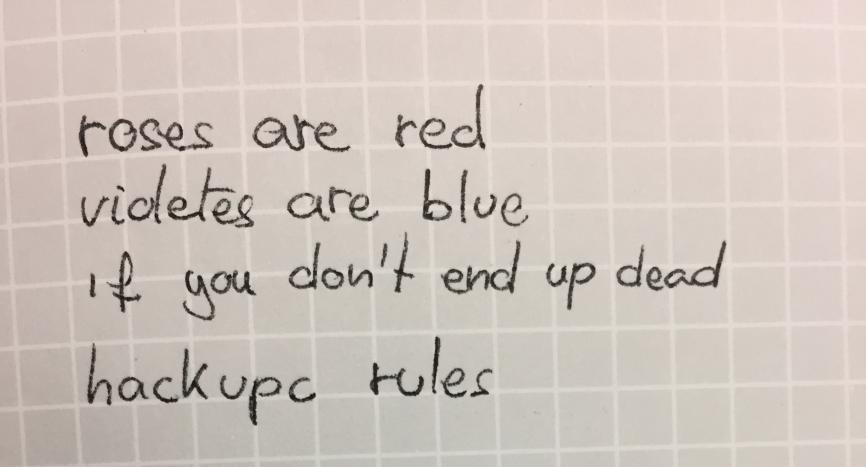 roses are red
violetes are blue
if you don't end up dead
hackupc rules